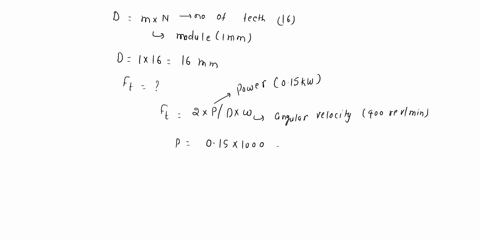 D = m x N → no of teeth (16)
↳ module (1mm)
D = 1 x 16 = 16 mm
Ft = ?
power (0.15kW)
Ft = 2 x P / D x ω ↳ angular velocity (400 rev/min)
P = 0.15 x 1000